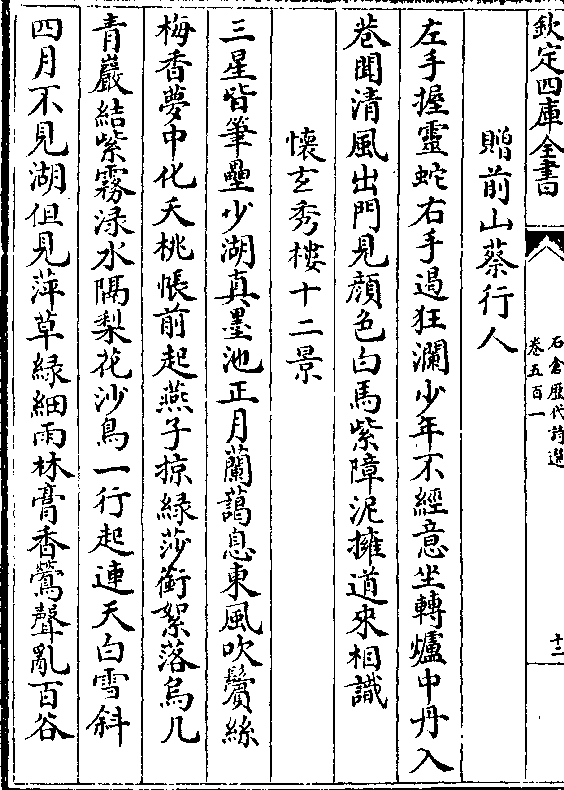 欽定四庫全書
石倉歷代詩選
卷五百一
十二
贈前山蔡行人
左手握靈蛇右手過狂瀾少年不經意坐轉爐中丹入
巷聞清風出門見顔色白馬紫障泥擁道來相識
懷玄秀樓十二景
三星皆筆壘少湖真墨池正月蘭藹息東風吹鬢絲
梅香夢中化夭桃帳前起燕子掠緑莎銜絮落烏几
青巖結紫霧渌水隔梨花沙鳥一行起連天白雪斜
四月不見湖但見萍草緑細雨林膏香鶯聲亂百谷